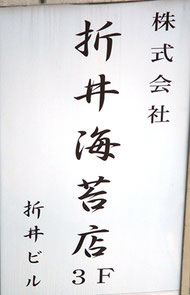 株式会社
折井海苔店
3F
折井ビル